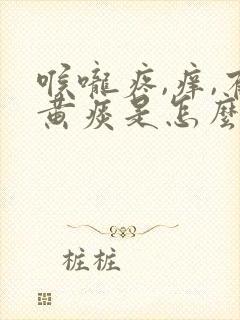 喉嚨疼,痒,有
黄痰是怎麼
桩桩